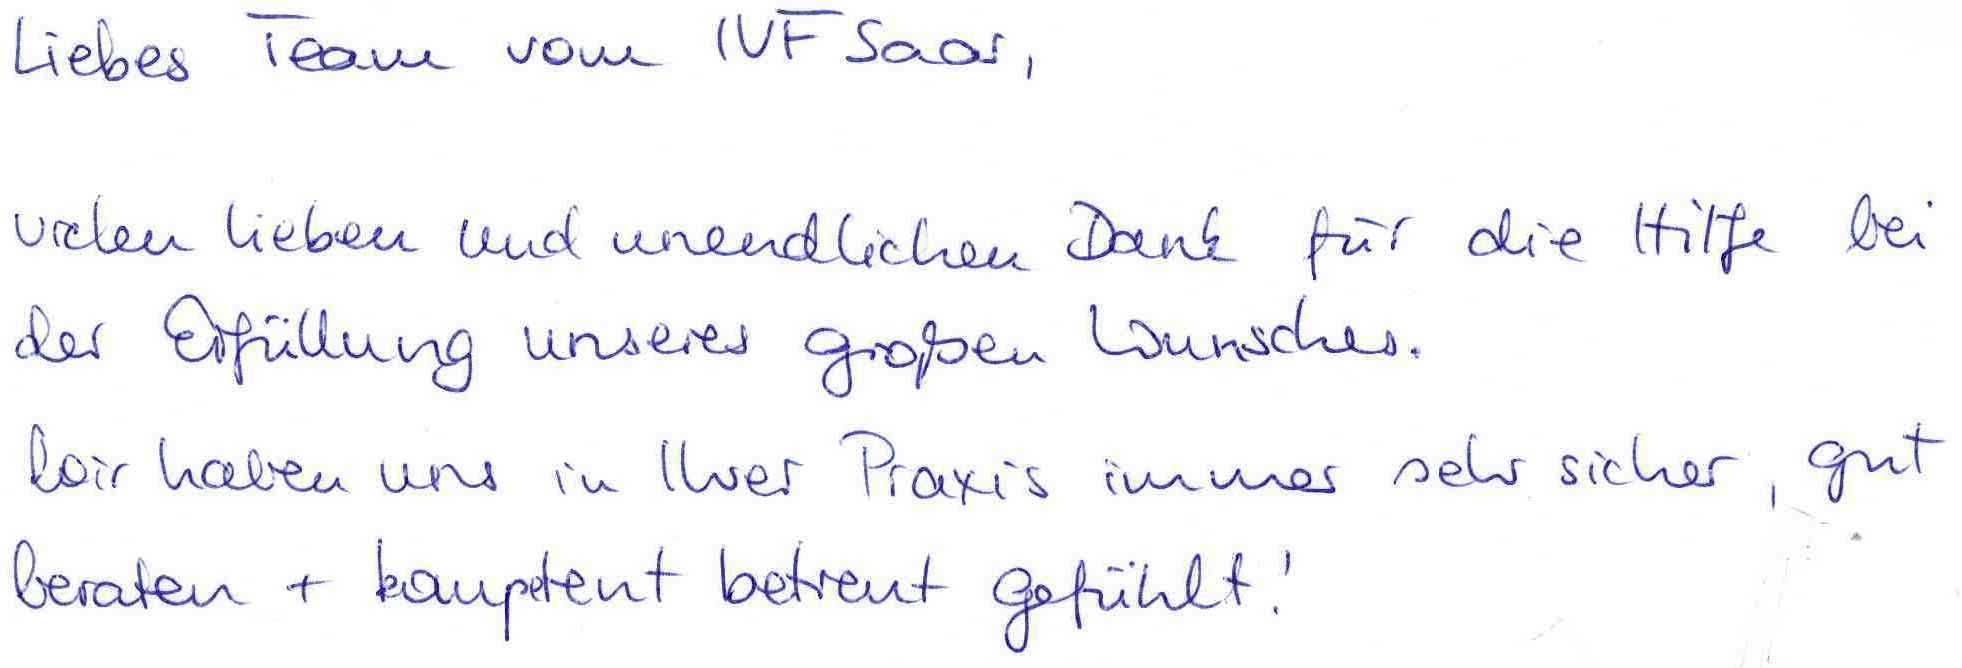 Liebes Team vom IVF Saar,
vielen lieben und unendlichen Dank für die Hilfe bei
der Erfüllung unseres großen Wunsches.
Wir haben uns in Ihrer Praxis immer sehr sicher, gut
beraten + kompetent betreut gefühlt!